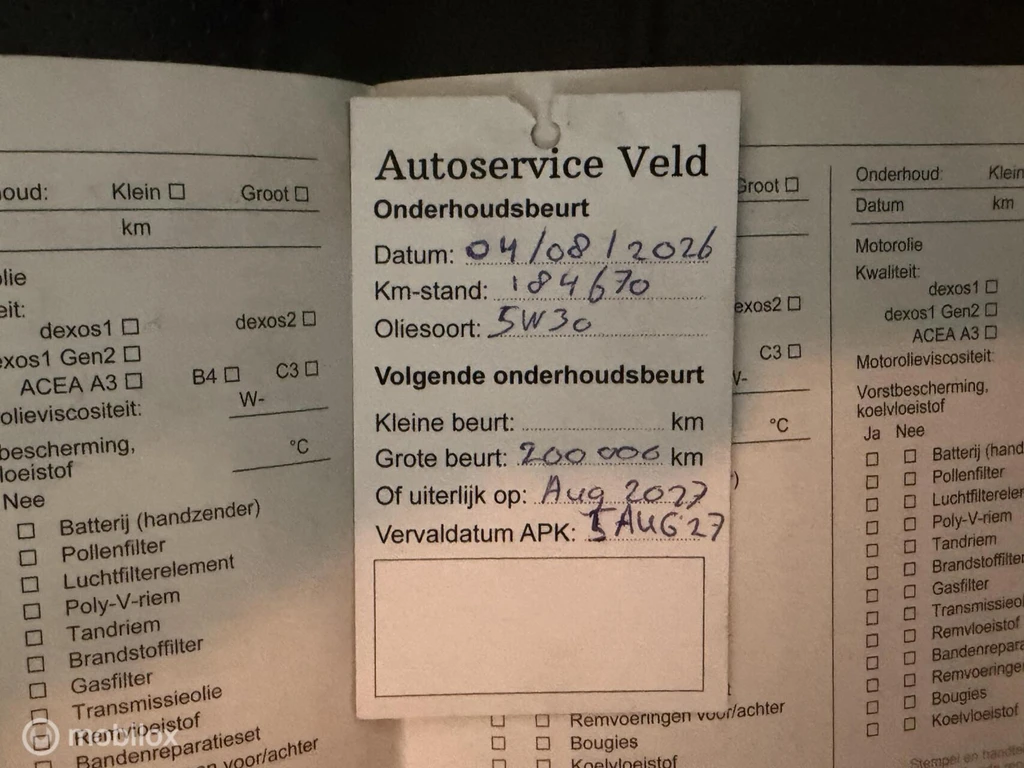 oud: Klein ☐ Groot ☐
km
lie
eit:
dexos1 ☐ dexos2 ☐
exos1 Gen2 ☐
ACEA A3 ☐ B4 ☐ C3 ☐
olieviscositeit: W-
bescherming,
loeistof °C
Nee
☐ Batterij (handzender)
☐ Pollenfilter
☐ Luchtfilterelement
☐ Poly-V-riem
☐ Tandriem
☐ Brandstoffilter
☐ Gasfilter
☐ Transmissieolie
☐ Remvloeistof
☐ Bandenreparatieset
voor/achter
Autoservice Veld
Onderhoudsbeurt
Datum: 04/08/2026
Km-stand: 184670
Oliesoort: 5W30
Volgende onderhoudsbeurt
Kleine beurt: km
Grote beurt: 200 000 km
Of uiterlijk op: Aug 2027
Vervaldatum APK: 5 AUG 27
Groot ☐
exos2 ☐
C3 ☐
W-
°C
☐ ☐ Remvoeringen voor/achter
☐ ☐ Bougies
☐ ☐ Koelvloeistof
Onderhoud: Klein
Datum km
Motorolie
Kwaliteit:
dexos1 ☐
dexos1 Gen2 ☐
ACEA A3 ☐
Motorolieviscositeit:
Vorstbescherming,
koelvloeistof
Ja Nee
☐ ☐ Batterij (hand
☐ ☐ Pollenfilter
☐ ☐ Luchtfilterelem
☐ ☐ Poly-V-riem
☐ ☐ Tandriem
☐ ☐ Brandstoffilte
☐ ☐ Gasfilter
☐ ☐ Transmissieol
☐ ☐ Remvloeistof
☐ ☐ Bandenrepara
☐ ☐ Remvoeringe
☐ ☐ Bougies
☐ ☐ Koelvloeistof
Stempel en handte
mobilox